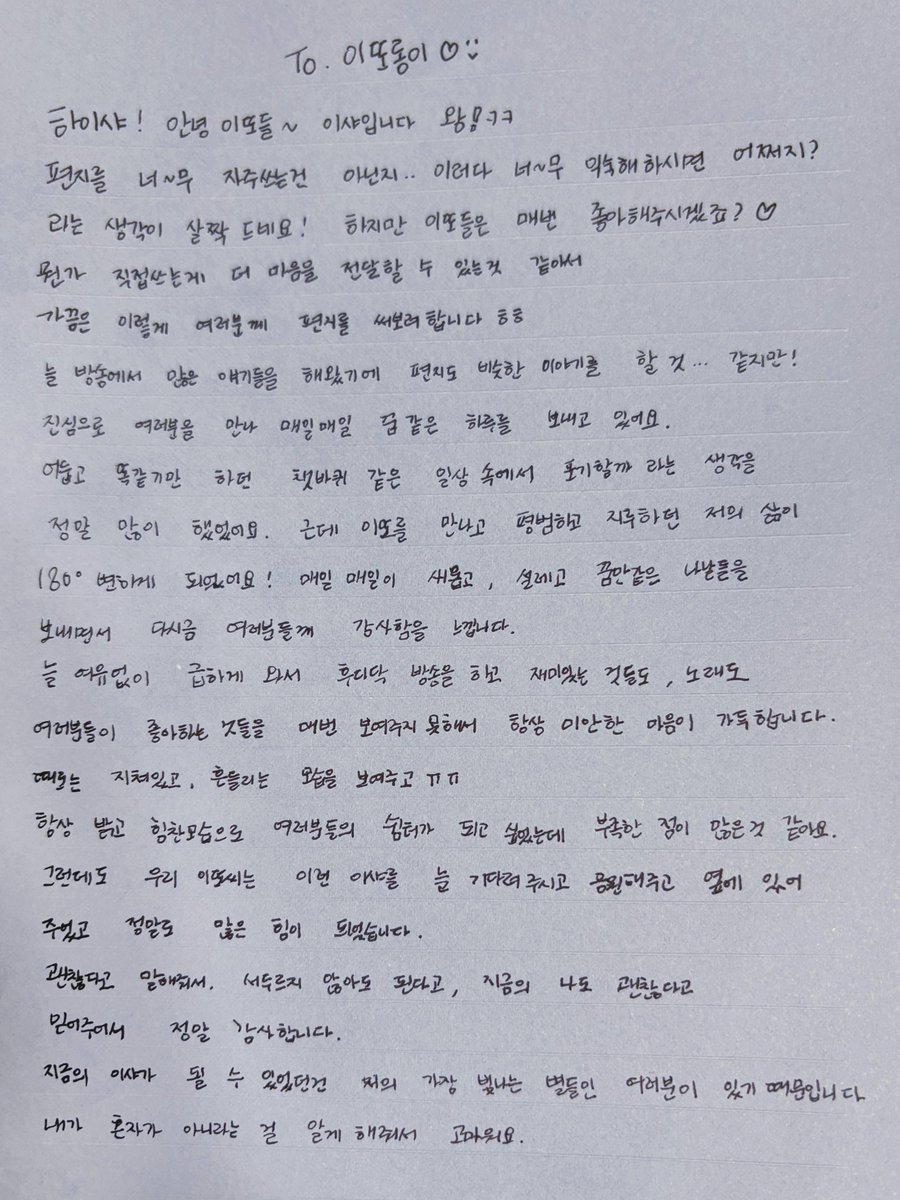 To. 이또롱이 ♡:)
하이샤! 안녕 이또들~ 이샤입니다 왕! ㅋㅋ
편지를 너~무 자주쓰는건 아닌지.. 이러다 너~무 익숙해하시면 어쩌지?
라는 생각이 살짝 드네요! 하지만 이또들은 매번 좋아해주시겠죠? ♡
뭔가 직접쓰는게 더 마음을 전달할 수 있는것 같아서
가끔은 이렇게 여러분께 편지를 써보려합니다 ㅎㅎ
늘 방송에서 많은 얘기들을 해왔기에 편지도 비슷한 이야기를 할 것... 같지만!
진심으로 여러분을 만나 매일매일 꿈같은 하루를 보내고 있어요.
어둡고 똑같기만 하던 챗바퀴 같은 일상 속에서 포기할까 라는 생각을
정말 많이 했었어요. 근데 이또를 만나고 평범하고 지루하던 저의 삶이
180° 변하게 되었어요! 매일 매일이 새롭고, 설레고 꿈만같은 나날들을
보내면서 다시금 여러분들께 감사함을 느낍니다.
늘 여유없이 급하게 와서 후다닥 방송을 하고 재미있는 것들도, 노래도
여러분들이 좋아하는 것들을 매번 보여주지 못해서 항상 미안한 마음이 가득합니다.
때로는 지쳐있고, 흔들리는 모습을 보여주고 ㅠㅠ
항상 밝고 힘찬모습으로 여러분들의 쉼터가 되고 싶었는데 부족한 점이 많은것 같아요.
그런데도 우리 이또씨는 이런 이샤를 늘 기다려주시고 응원해주고 옆에 있어
주었고 정말로 많은 힘이 되었습니다.
괜찮다고 말해줘서. 서두르지 않아도 된다고, 지금의 나도 괜찮다고
믿어주어서 정말 감사합니다.
지금의 이샤가 될 수 있었던건 저의 가장 빛나는 별들인 여러분이 있기 때문입니다
내가 혼자가 아니라는 걸 알게 해줘서 고마워요.